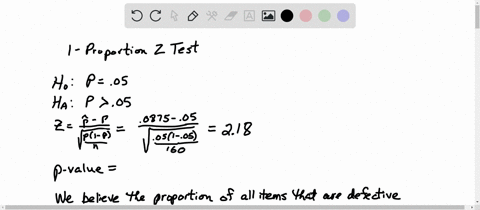 1-Proportion Z Test
H₀: P = .05
Hₐ: P > .05
Z = (p̂ - p) / √(p(1-p)/n) = (.0875-.05) / √(.05(1-.05)/160) = 2.18
p-value =
We believe the proportion of all items that are defective